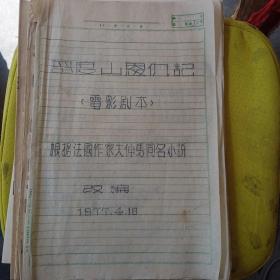 基度山恩仇記
(電影剧本)
根据法國作家大仲馬同名小説
改編
1977.4.18